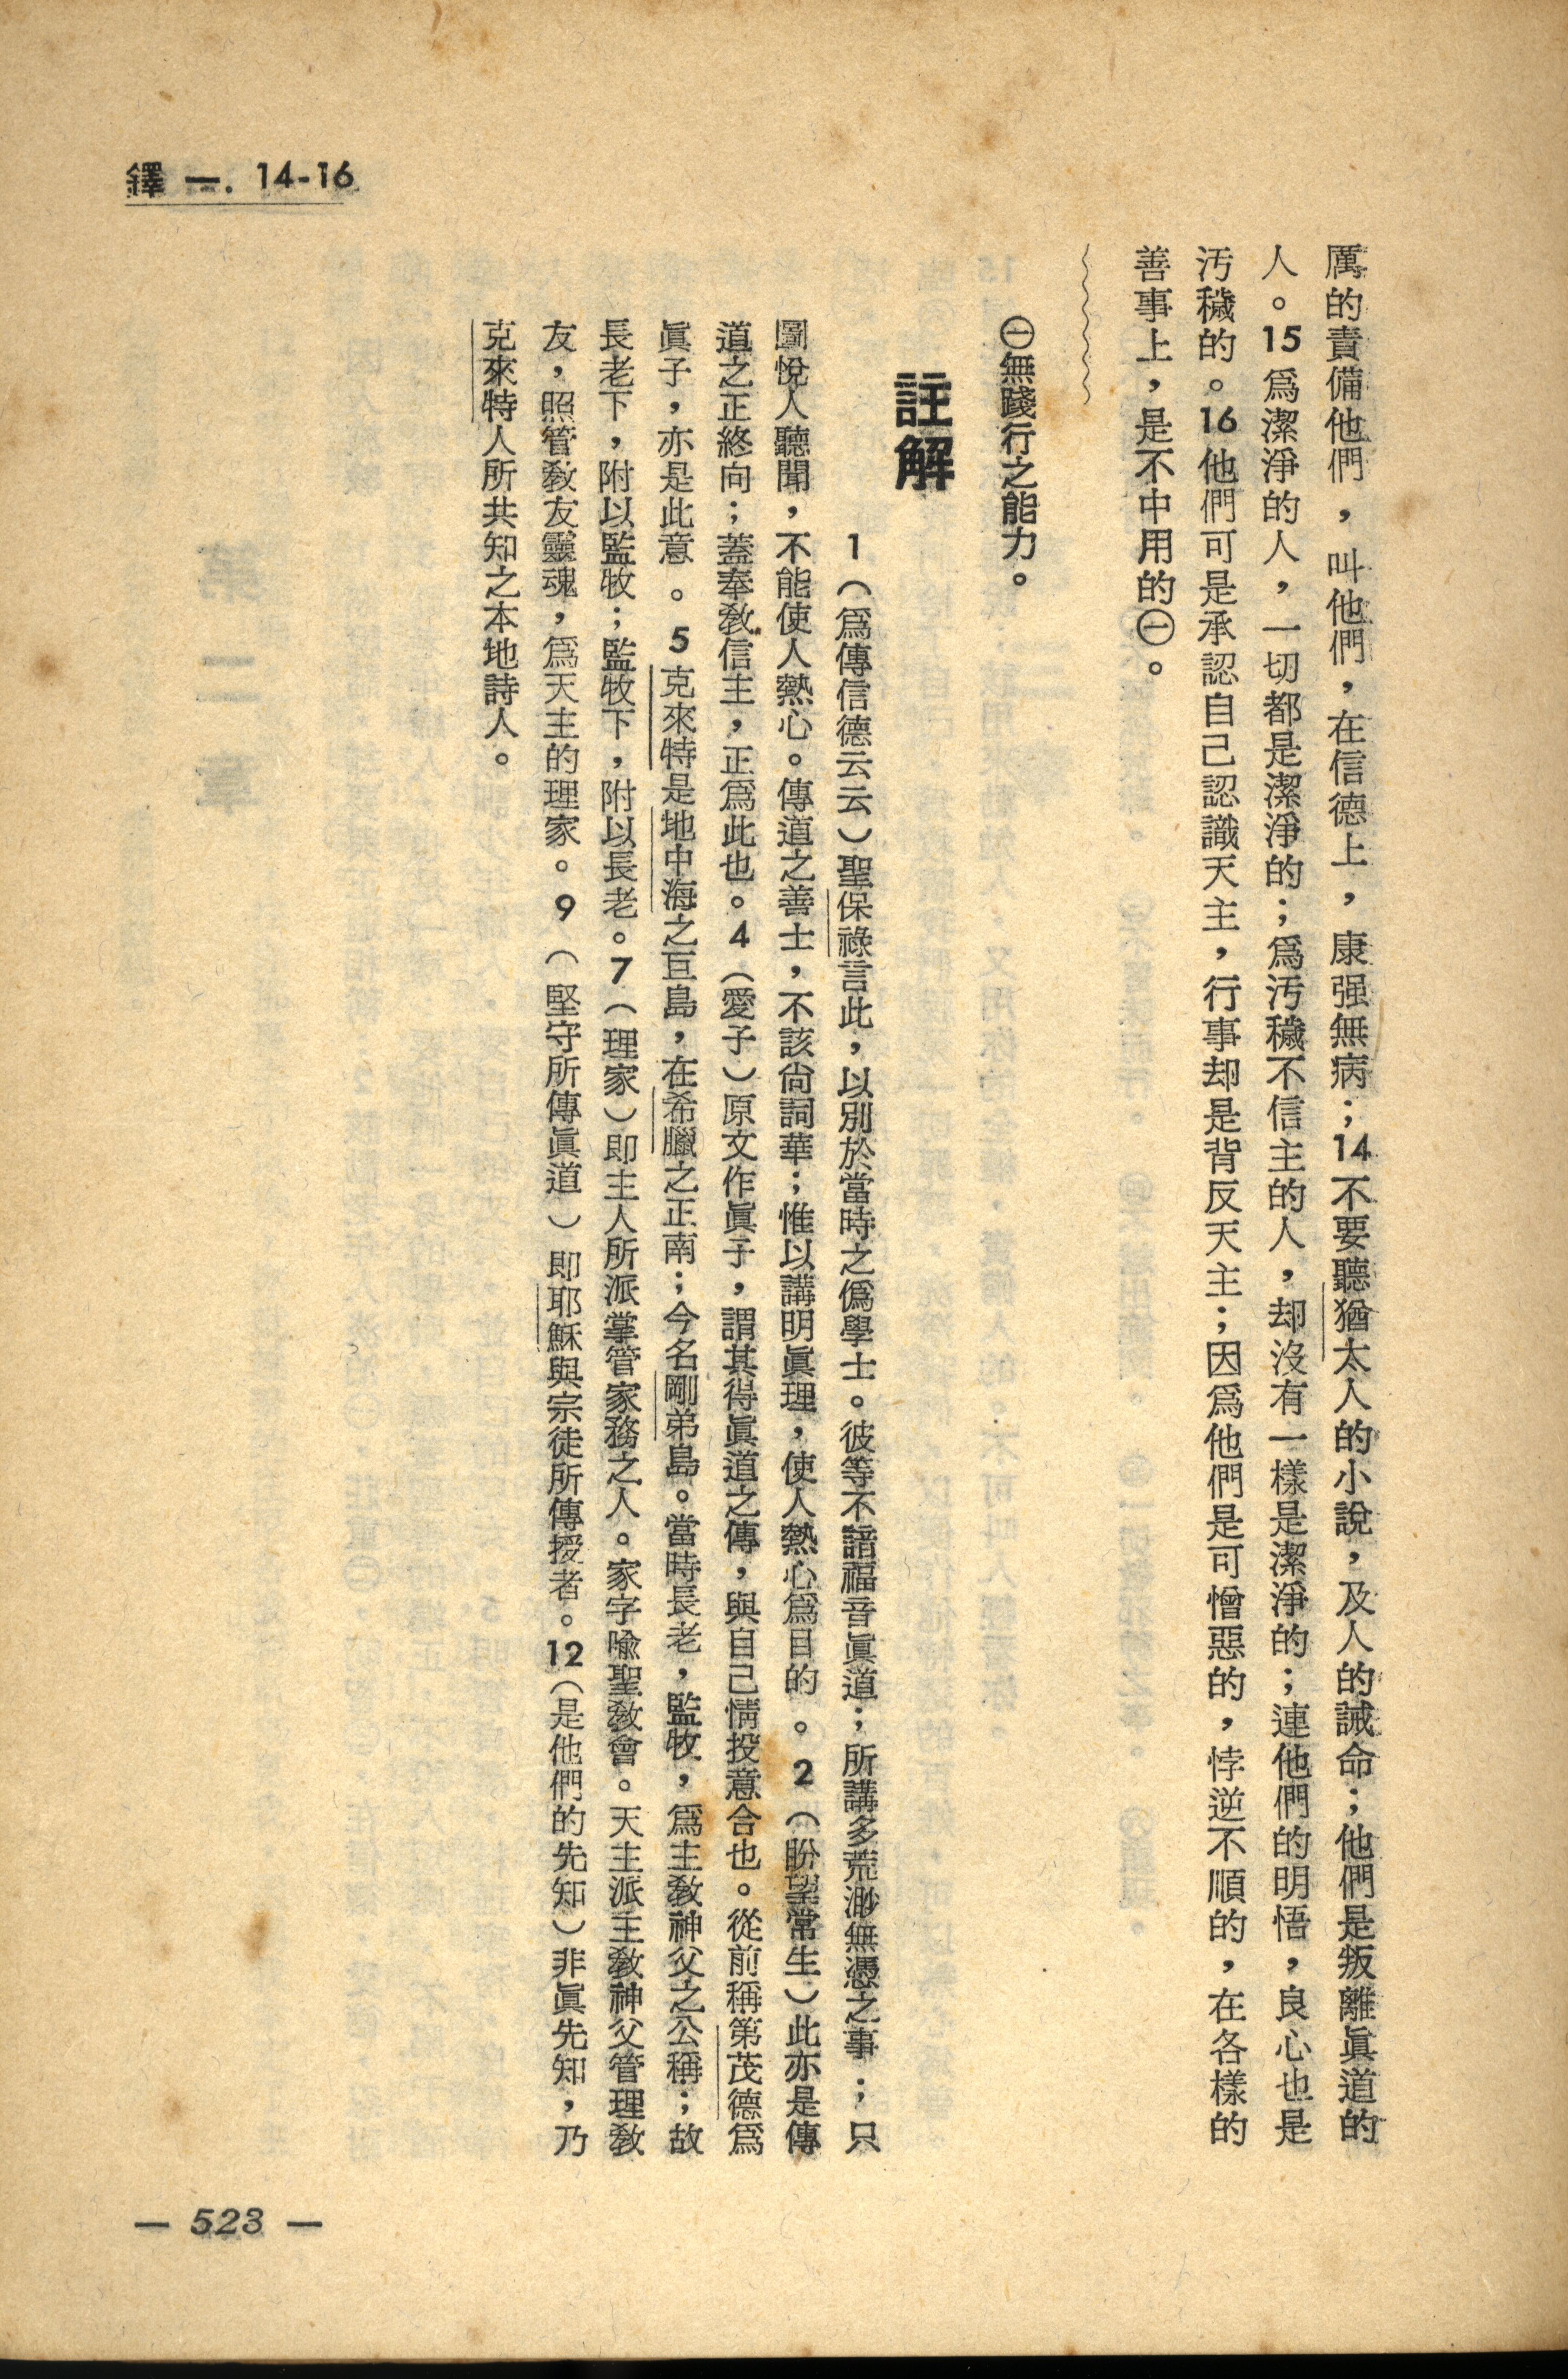 鐸 一. 14-16
厲的責備他們，叫他們，在信德上，康强無病；14不要聽猶太人的小說，及人的誡命；他們是叛離眞道的
人。15爲潔淨的人，一切都是潔淨的；爲汚穢不信主的人，却沒有一樣是潔淨的；連他們的明悟，良心也是
汚穢的。16他們可是承認自己認識天主，行事却是背反天主；因爲他們是可憎惡的，悖逆不順的，在各樣的
善事上，是不中用的㊀。
㊀無踐行之能力。
註解
1（爲傳信德云云）聖保祿言此，以別於當時之僞學士。彼等不諳福音眞道；所講多荒渺無憑之事；只
圖悅人聽聞，不能使人熱心。傳道之善士，不該尙詞華；惟以講明眞理，使人熱心爲目的。2（盼望常生）此亦是傳
道之正終向；蓋奉敎信主，正爲此也。4（愛子）原文作眞子，謂其得眞道之傳，與自己情投意合也。從前稱第茂德爲
眞子，亦是此意。5克來特是地中海之巨島，在希臘之正南；今名剛弟島。當時長老，監牧，爲主敎神父之公稱；故
長老下，附以監牧；監牧下，附以長老。7（理家）即主人所派掌管家務之人。家字喻聖敎會。天主派主敎神父管理敎
友，照管敎友靈魂，爲天主的理家。9（堅守所傳眞道）即耶穌與宗徒所傳授者。12（是他們的先知）非眞先知，乃
克來特人所共知之本地詩人。
— 523 —